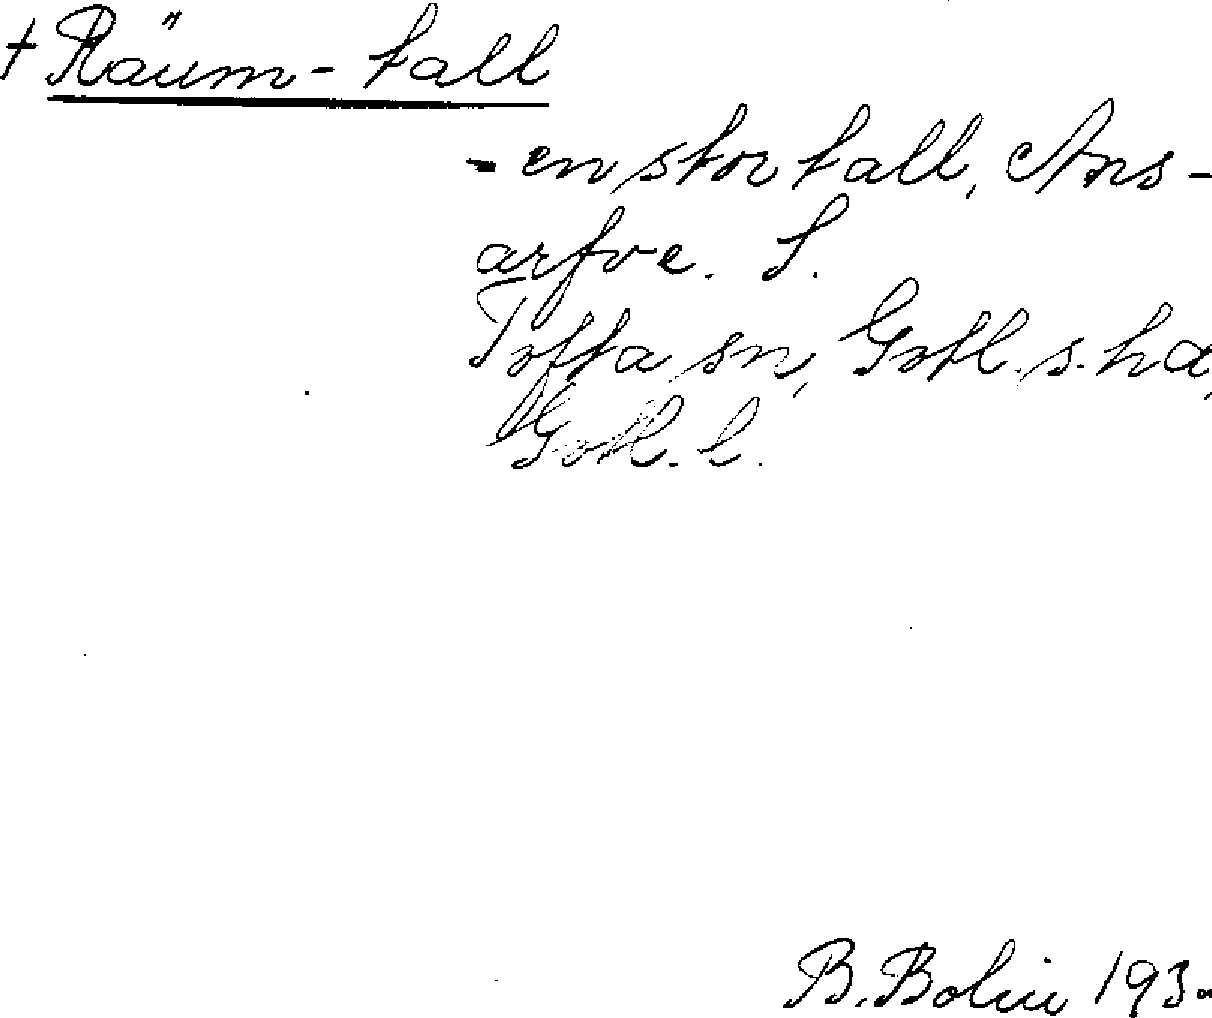 † Räum-tall
- en stor tall, Ans-
arfve. S.
Tofta sn, Gotl. s. hd,
Gotl. l.
B. Bolin 193